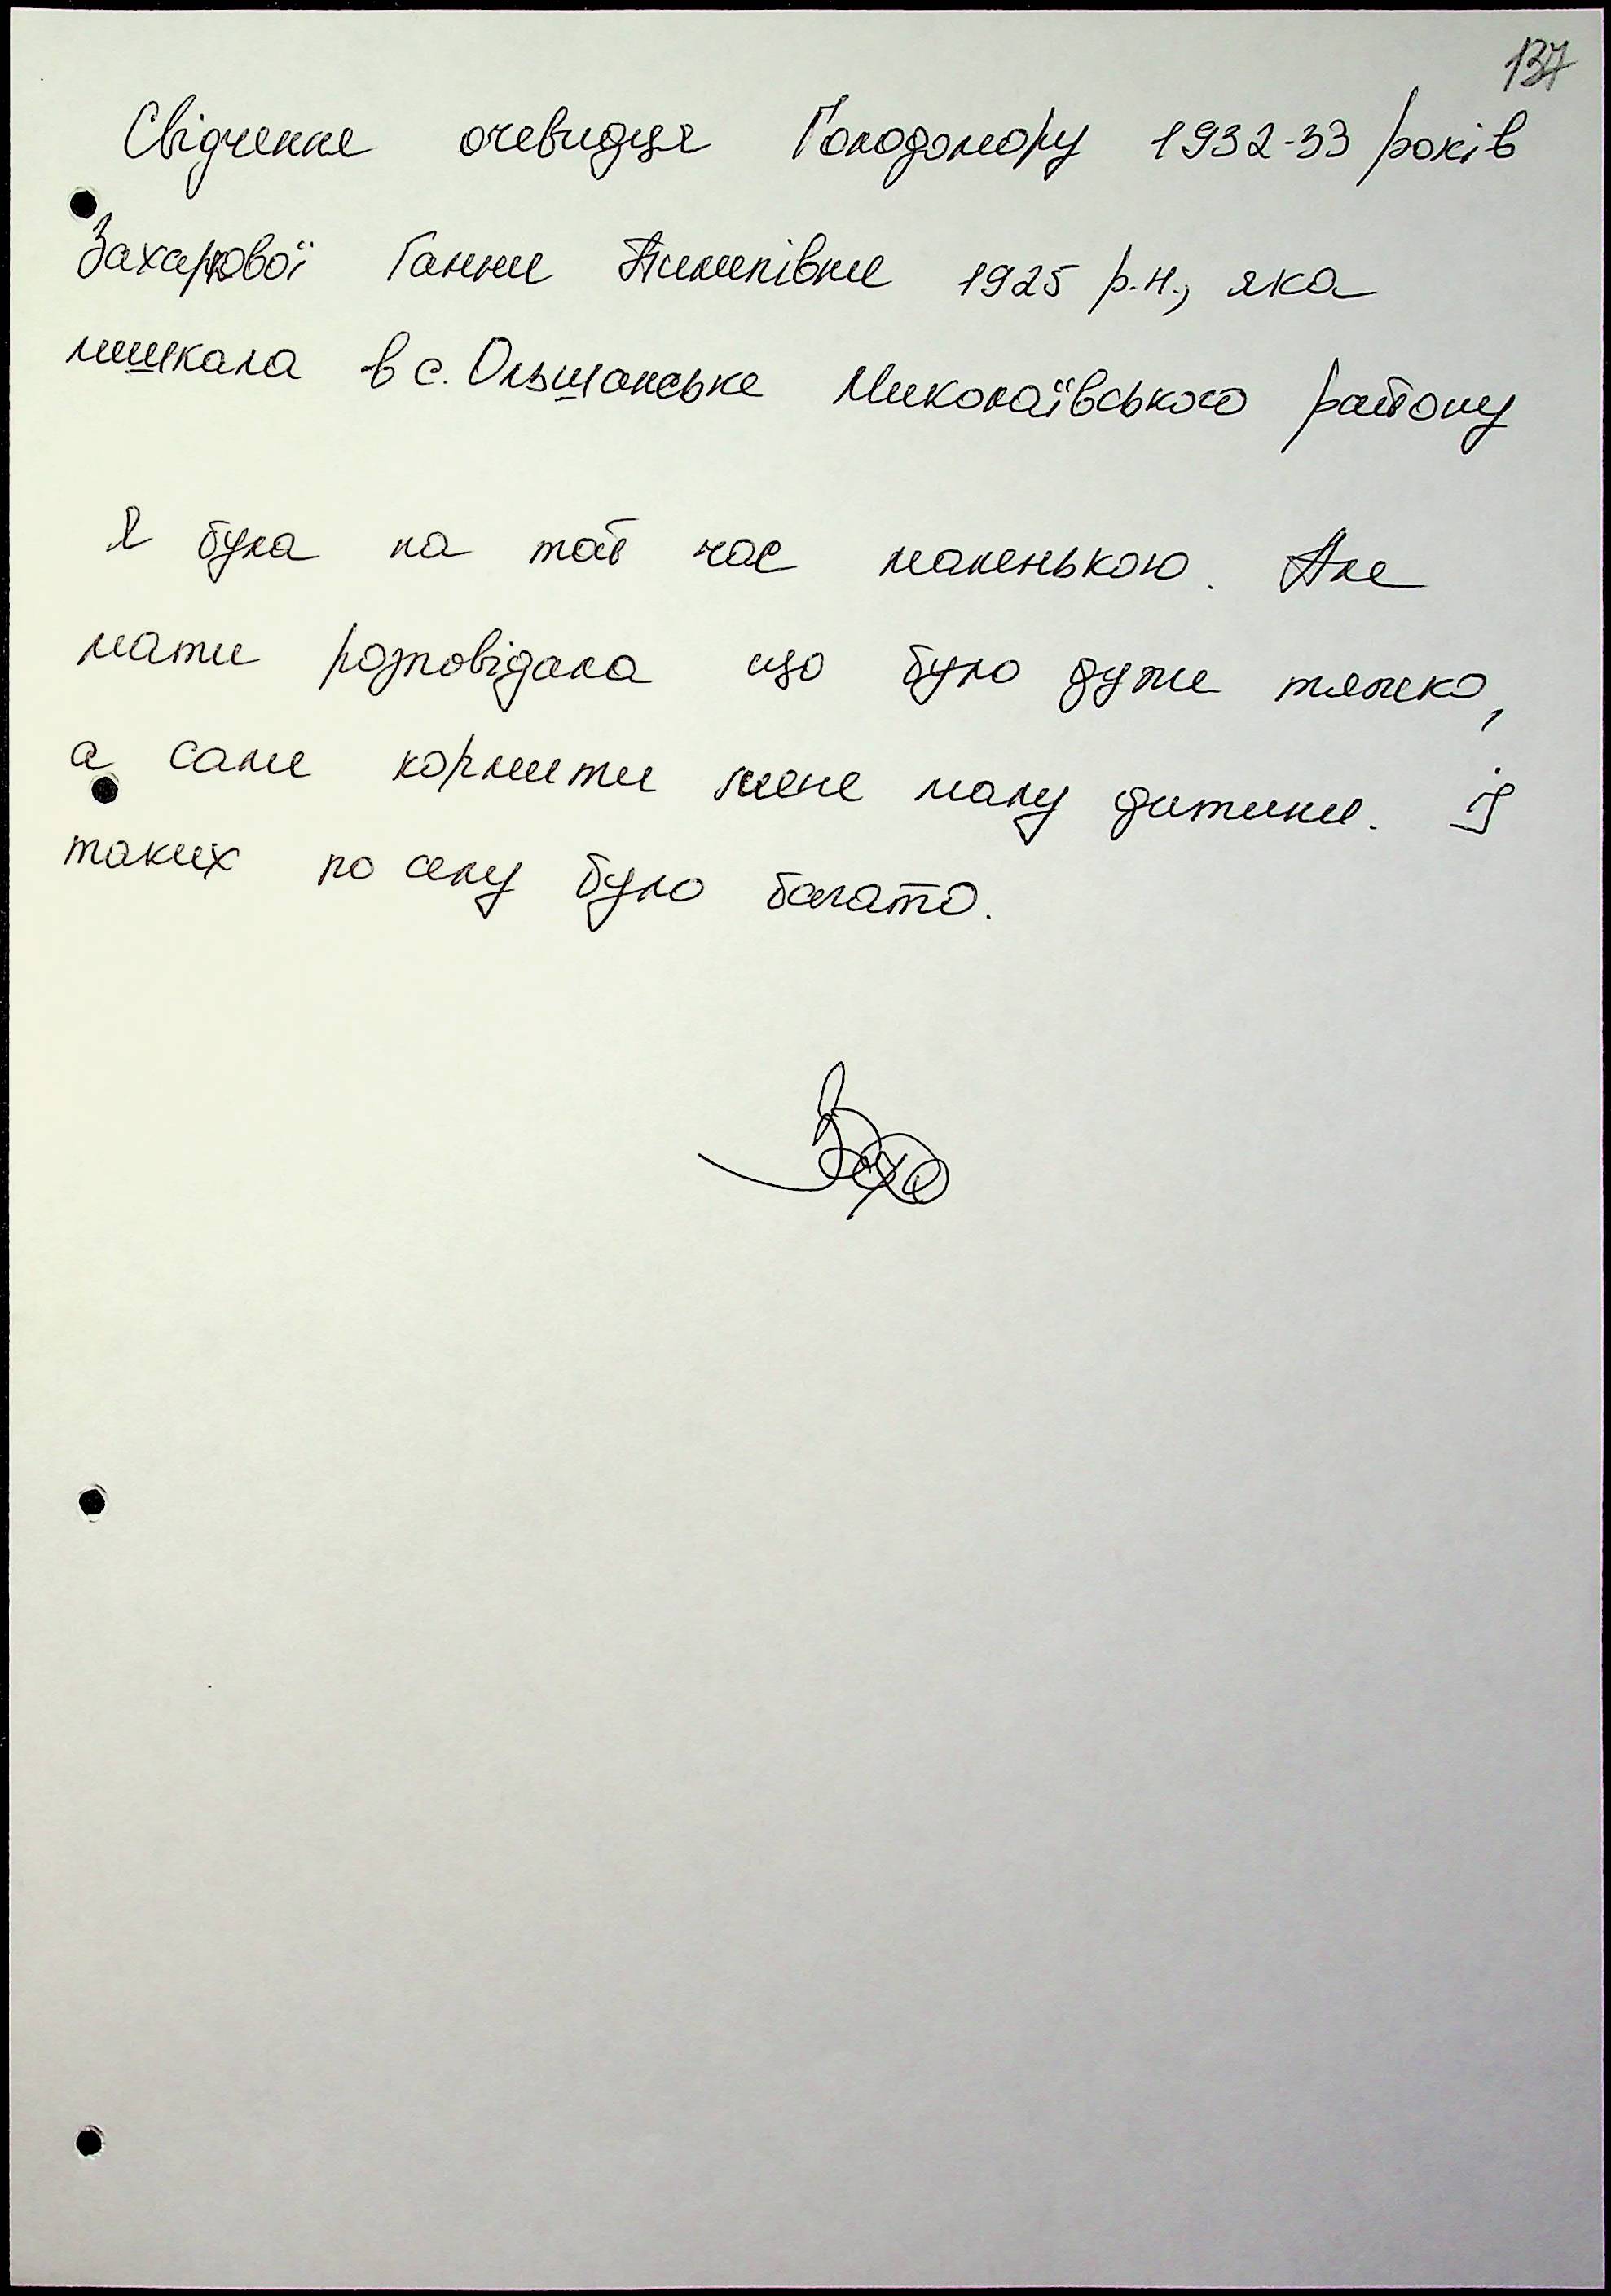 137
Свідчення очевидця Голодомору 1932-33 років
Захарової Ганни Пилипівни 1925 р.н., яка
мишкала в с. Ольшанське Миколаївського району
Я була на той час маленькою. Але
мати розповідала що було дуже тяжко,
а саме кормити мене малу дитини. І
таких по селу було багато.